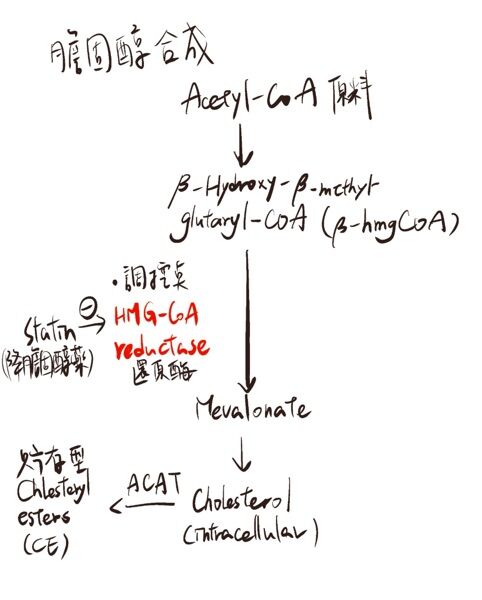 膽固醇合成
Acetyl-CoA 原料
β-Hydroxy-β-methyl-
glutaryl-COA (β-hmgCOA)
・調控点
HMG-CoA
reductase
還原酶
Statin
(降膽固醇藥)
Mevalonate
Cholesterol
(intracellular)
ACAT
貯存型
Chlesteryl
esters
(CE)